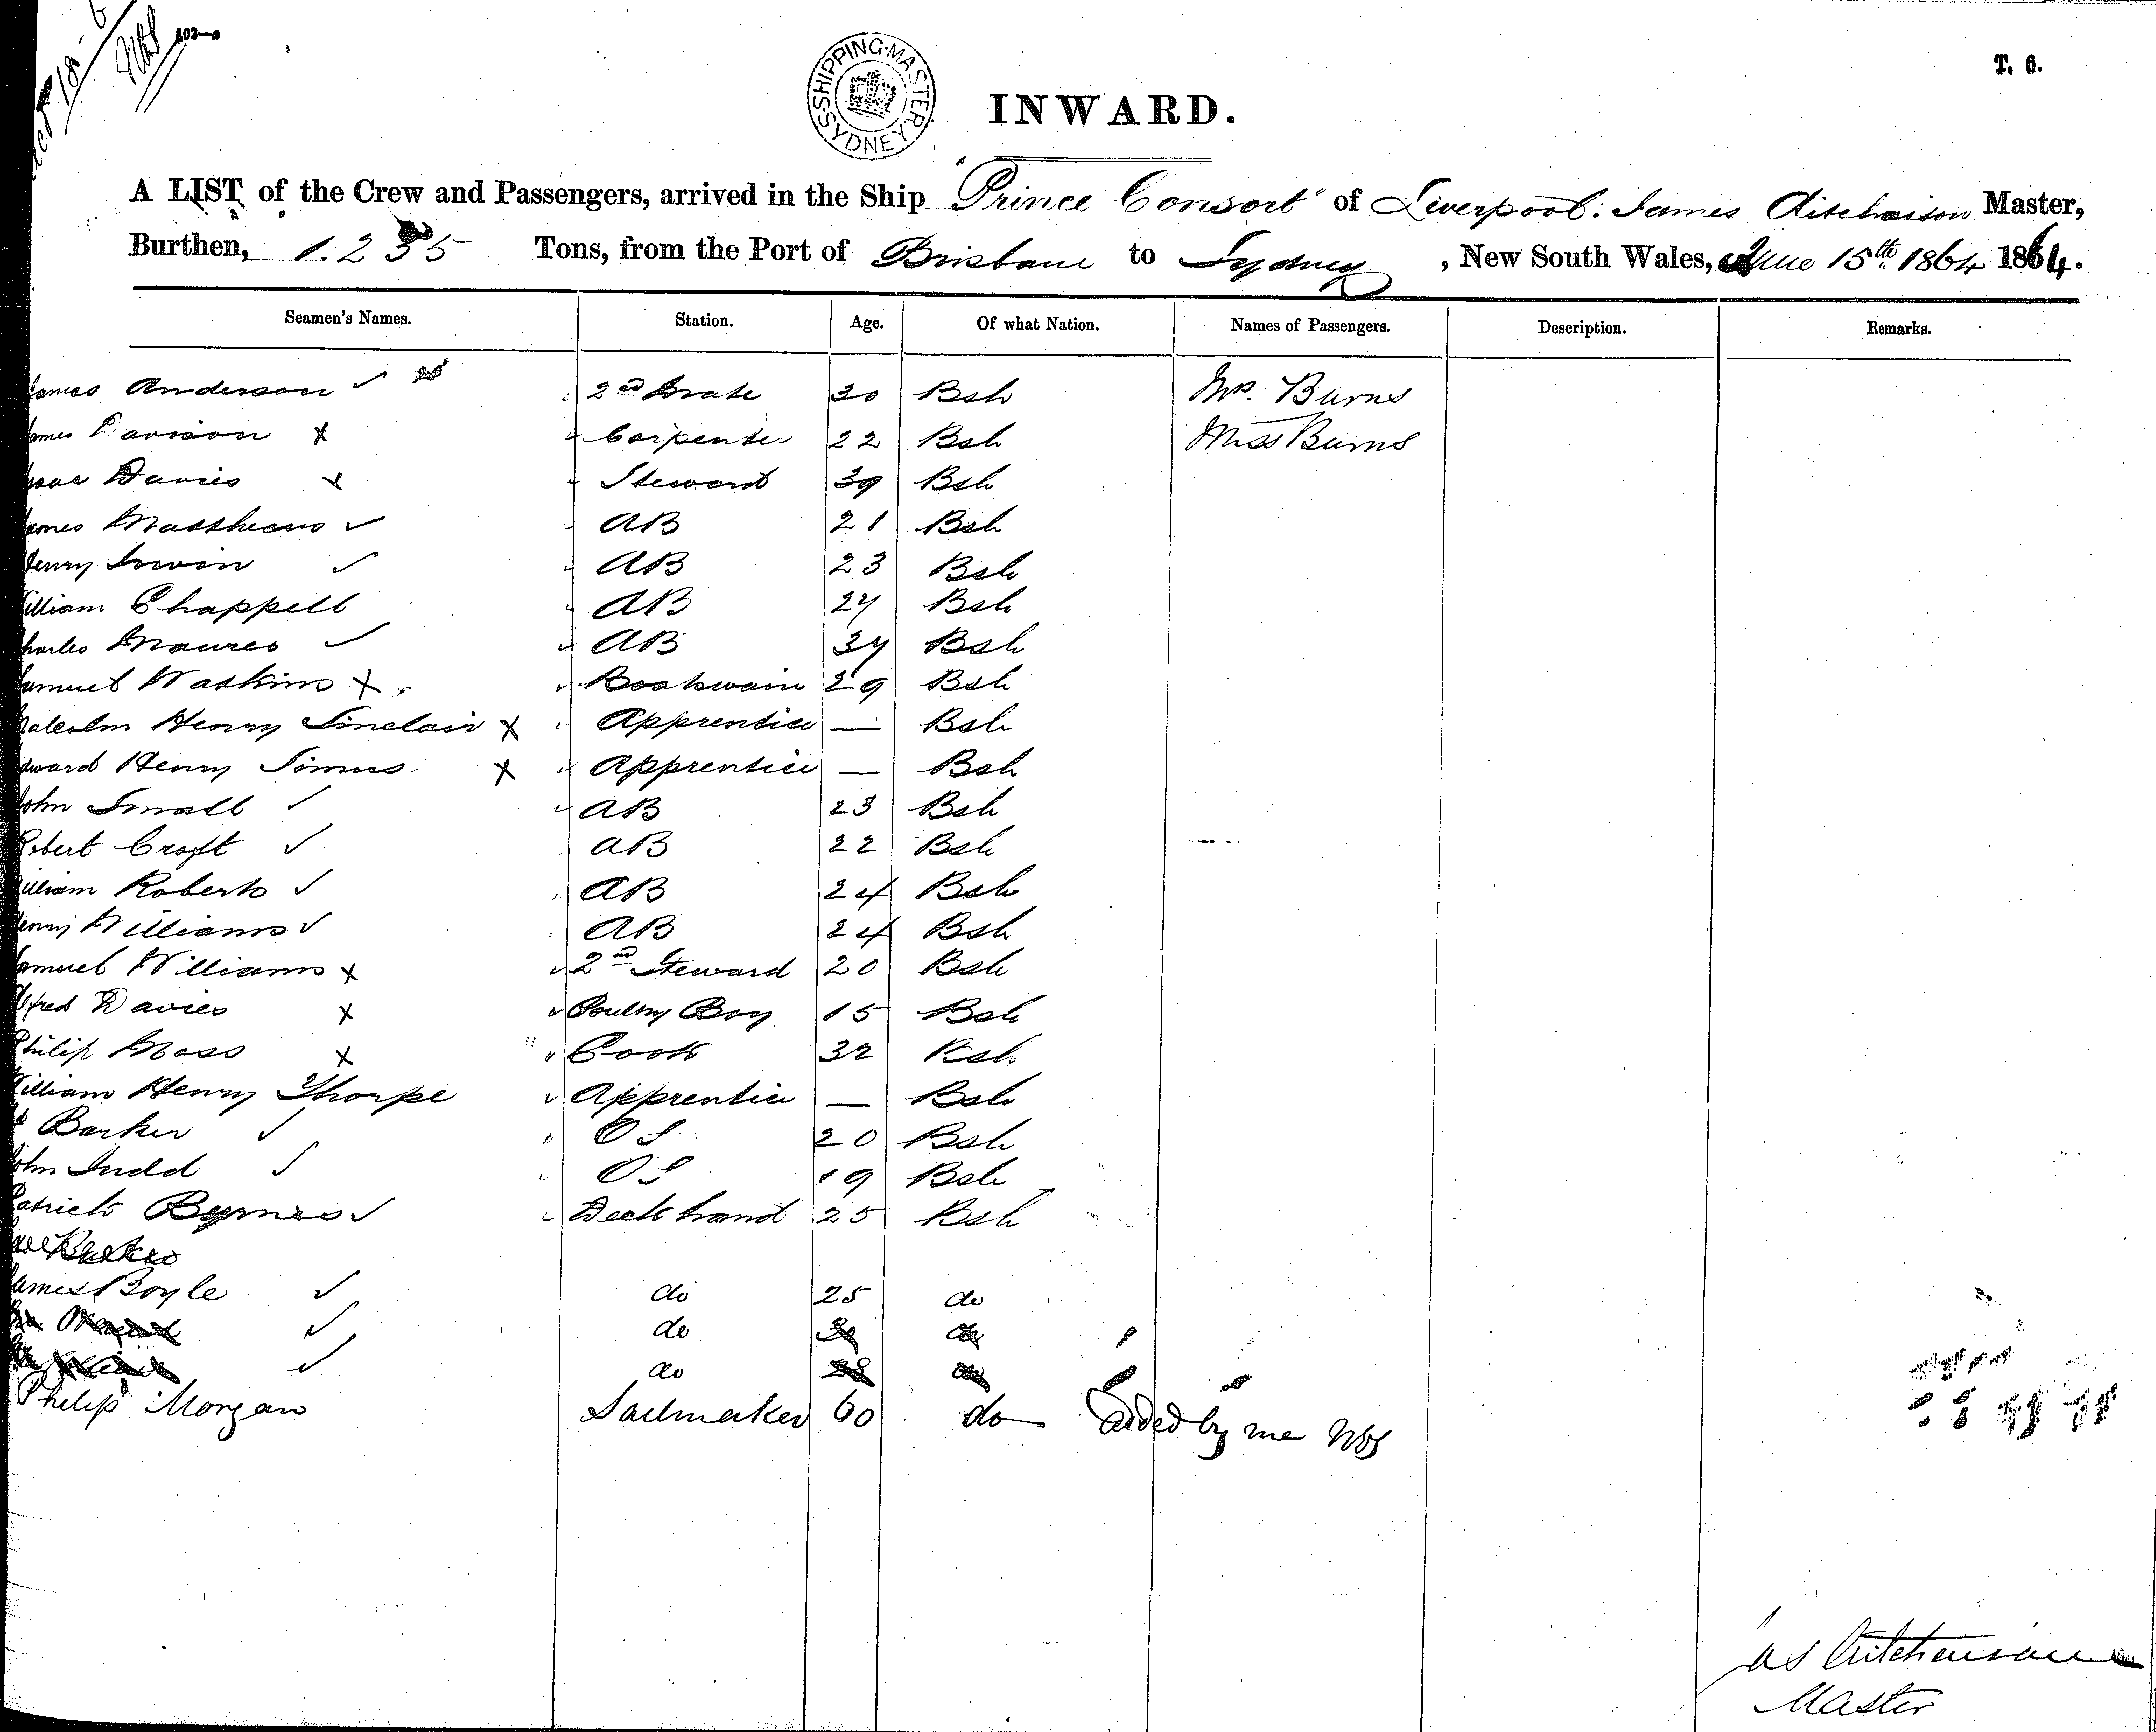 SHIPPING MASTER SYDNEY
T. 6.
INWARD.
A LIST of the Crew and Passengers, arrived in the Ship "Prince Consort" of Liverpool. James Aitchison Master,
Burthen, 1.235 Tons, from the Port of Brisbane to Sydney, New South Wales, June 15th 1864 1864.
Seamen's Names. Station. Age. Of what Nation. Names of Passengers. Description. Remarks.
James Anderson 2nd Mate 30 Bsh Mr. Burns
James Davison x Carpenter 22 Bsh Miss Burns
Davies x Steward 39 Bsh
James Matthews AB 21 Bsh
Henry Irwin AB 23 Bsh
William Chappell AB 24 Bsh
Charles AB 34 Bsh
Samuel Watkins x Boatswain 29 Bsh
Malcolm Henry Sinclair x Apprentice — Bsh
Edward Henry Simms x Apprentice — Bsh
John Small AB 23 Bsh
Robert Croft AB 22 Bsh
William Roberts AB 24 Bsh
Henry Williams AB 24 Bsh
Samuel Williams x 2nd Steward 20 Bsh
Alfred Davies x Poultry Boy 15 Bsh
Philip Moss x Cook 32 Bsh
William Henry Thorpe Apprentice — Bsh
Barker OS 20 Bsh
John Judd OS 19 Bsh
Patrick Byrnes Deck hand 25 Bsh
James Boyle do 25 do
do
do
Philip Morgan Sailmaker 60 do added by me
Jas Aitchison
Master